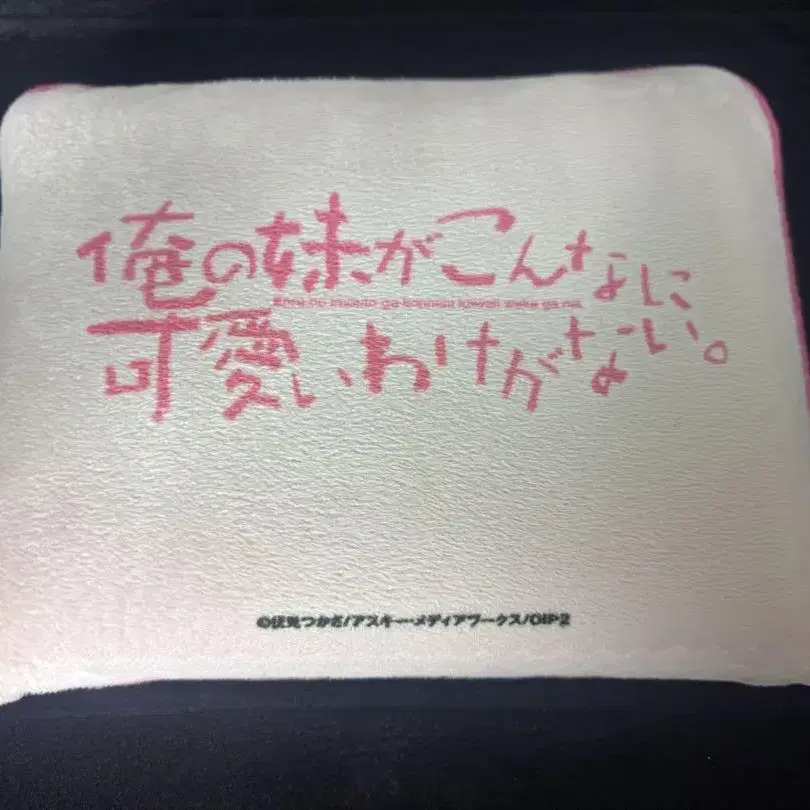 俺の妹がこんなに
Ore no imouto ga konnani kawaii wake ga nai.
可愛いわけがない。
©伏見つかさ/アスキー・メディアワークス/OIP2